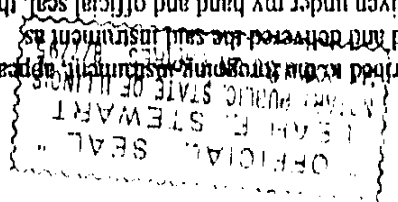 " OFFICIAL SEAL "
LEAH F. STEWART
NOTARY PUBLIC STATE OF ILLINOIS
foregoing instrument, appea
d and delivered the said instrument as
iven under my hand and official seal, th